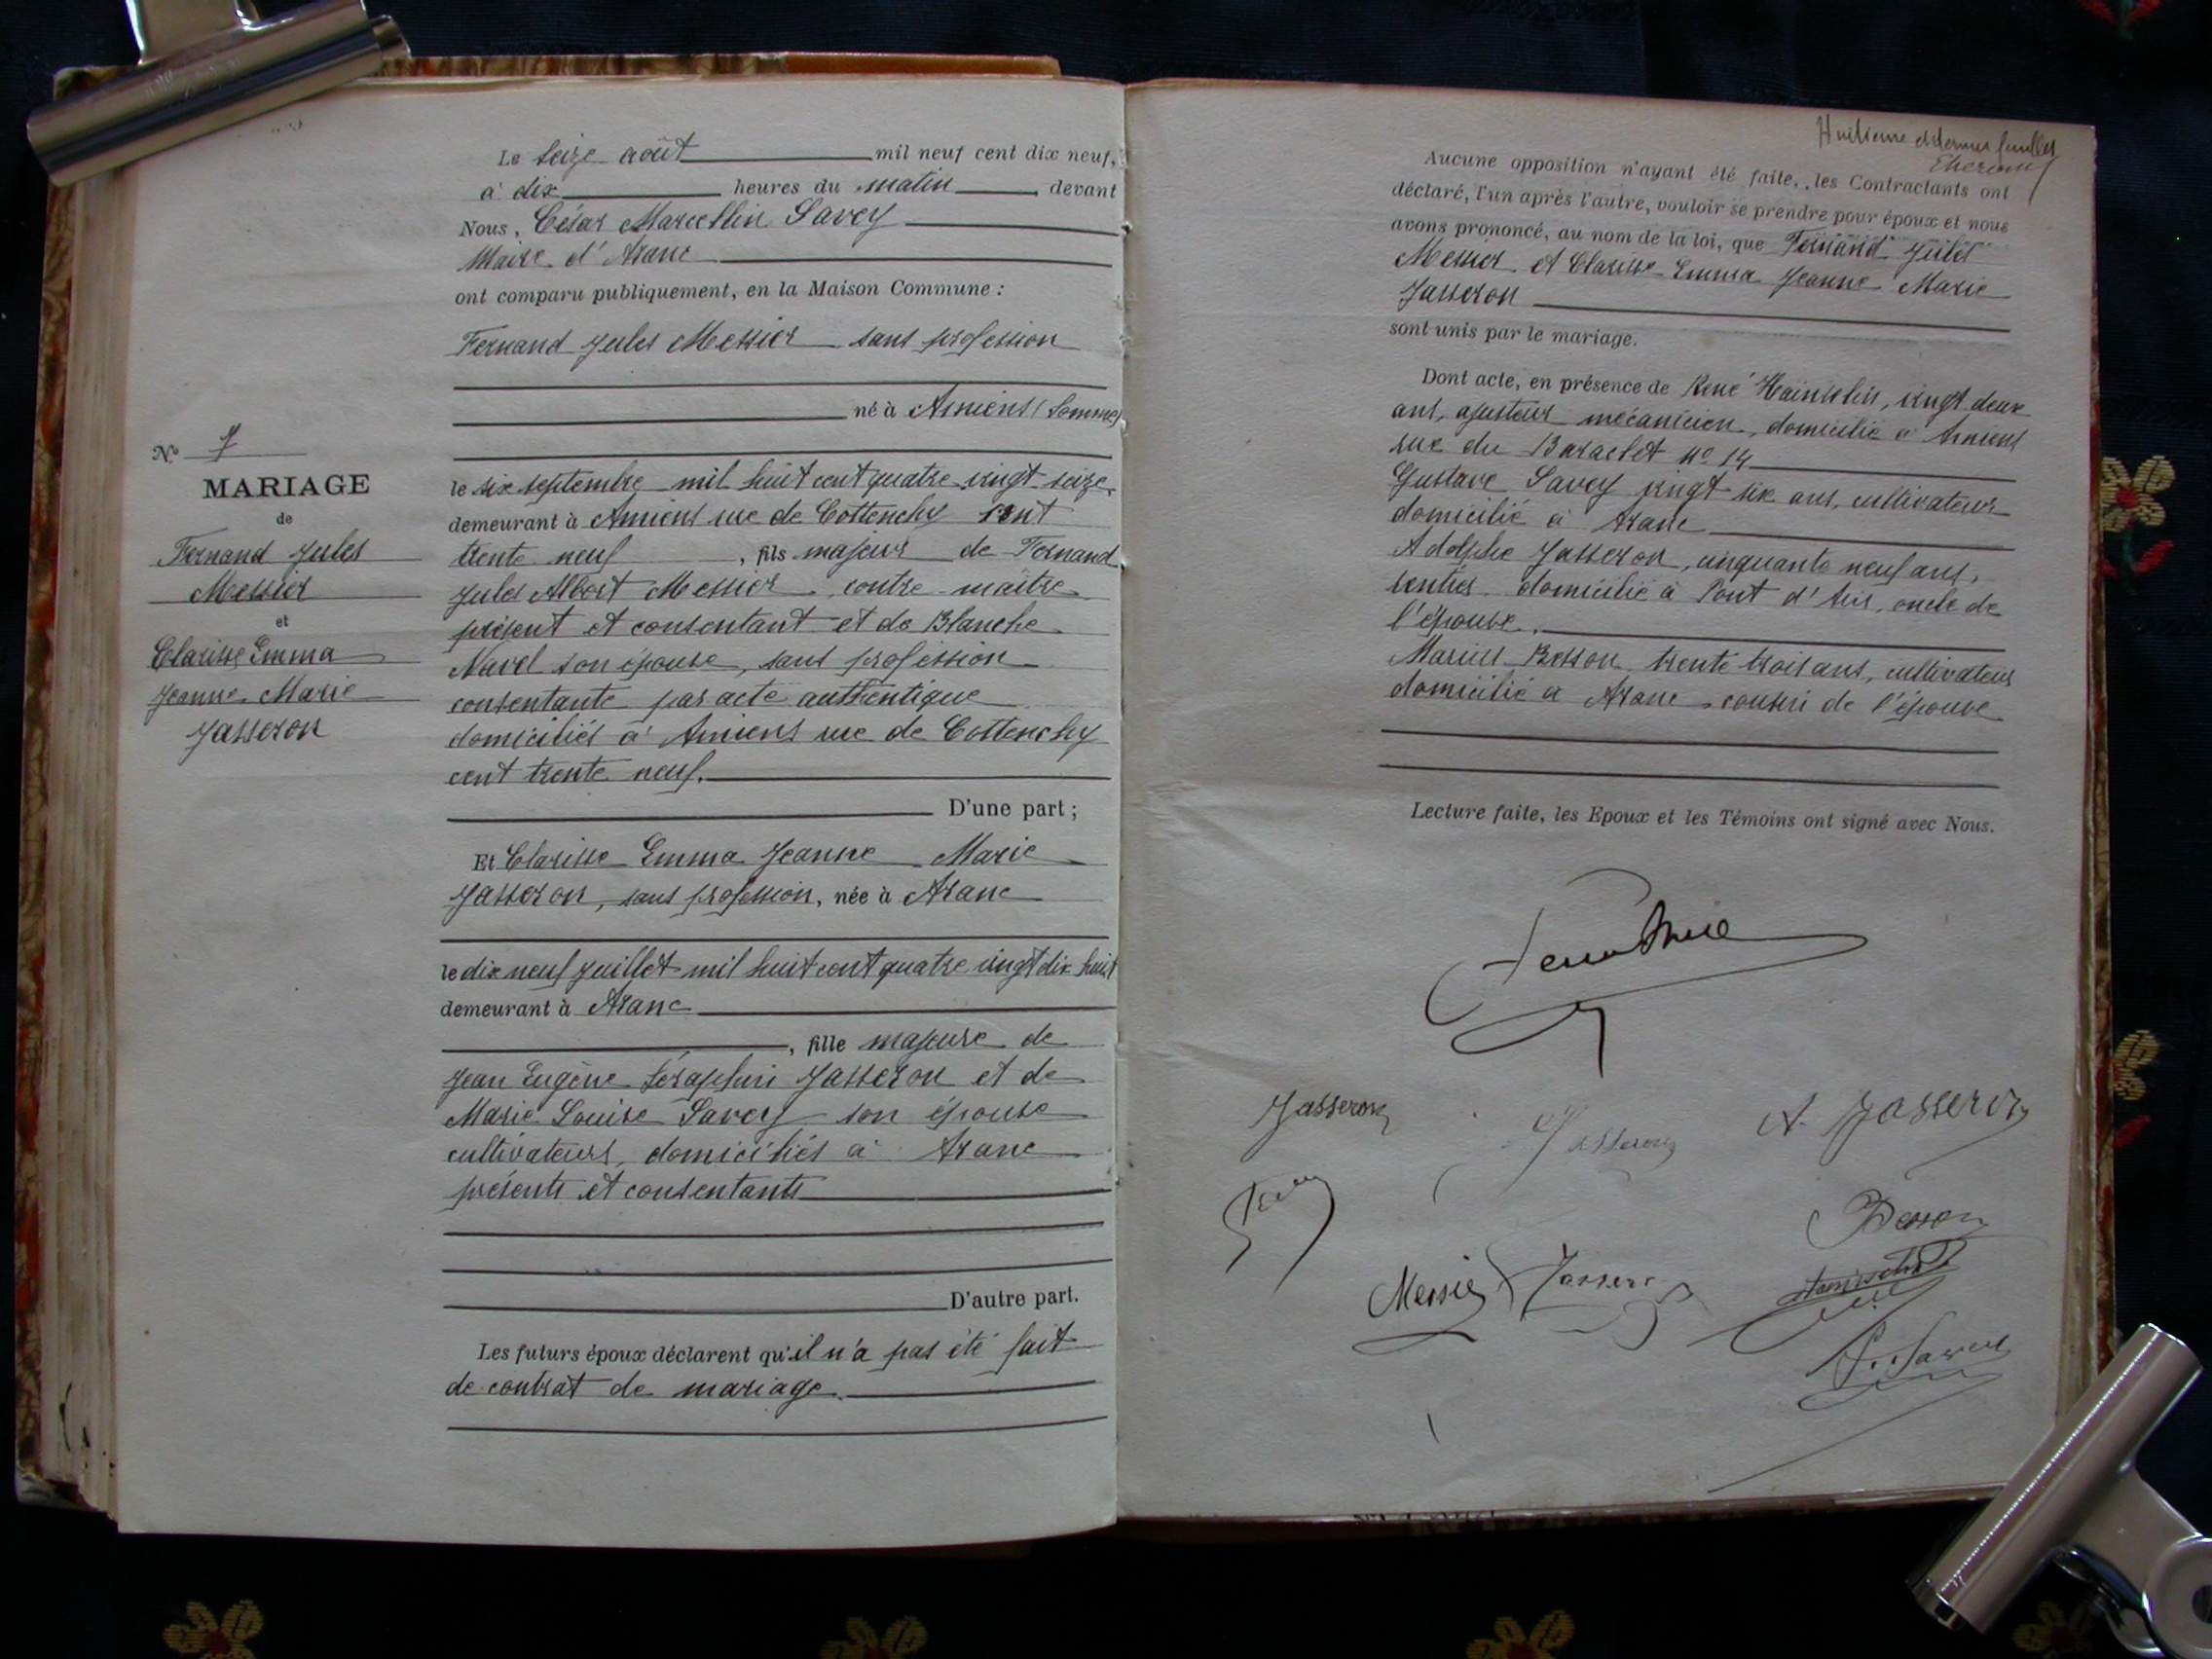 Le seize août mil neuf cent dix neuf,
à dix heures du matin devant
Nous, César Marcellin Savey
Maire d'Aranc
ont comparu publiquement, en la Maison Commune :
Fernand Jules Messier sans profession
né à Amiens (Somme)
le six septembre mil huit cent quatre vingt seize
demeurant à Amiens rue de Cottenchy cent
trente neuf, fils majeur de Fernand
Jules Albert Messier, contre-maître
présent et consentant et de Blanche
Navel son épouse, sans profession
consentante par acte authentique
domiciliés à Amiens rue de Cottenchy
cent trente neuf.
D'une part ;
Et Clarisse Emma Jeanne Marie
Jasseron, sans profession, née à Aranc
le dix neuf juillet mil huit cent quatre vingt dix huit
demeurant à Aranc
, fille majeure de
Jean Eugène Séraphin Jasseron et de
Marie Louise Savey son épouse
cultivateurs, domiciliés à Aranc
présents et consentants
D'autre part.
Les futurs époux déclarent qu'il n'a pas été fait
de contrat de mariage.
No 7
MARIAGE
de
Fernand Jules
Messier
et
Clarisse Emma
Jeanne Marie
Jasseron
Huitième et dernier feuillet
Aucune opposition n'ayant été faite, les Contractants ont
déclaré, l'un après l'autre, vouloir se prendre pour époux et nous
avons prononcé, au nom de la loi, que Fernand Jules
Messier et Clarisse Emma Jeanne Marie
Jasseron
sont unis par le mariage.
Dont acte, en présence de René, vingt deux
ans, ajusteur mécanicien, domicilié à Amiens
rue du No 14
Gustave Savey vingt six ans, cultivateur
domicilié à Aranc
Adolphe Jasseron, cinquante neuf ans,
rentier domicilié à Pont d'Ain, oncle de
l'épouse.
Marius Besson trente trois ans, cultivateur
domicilié à Aranc cousin de l'épouse
Lecture faite, les Epoux et les Témoins ont signé avec Nous.
Jasseron
Jasseron
A. Jasseron
Besson
Messier Jasseron